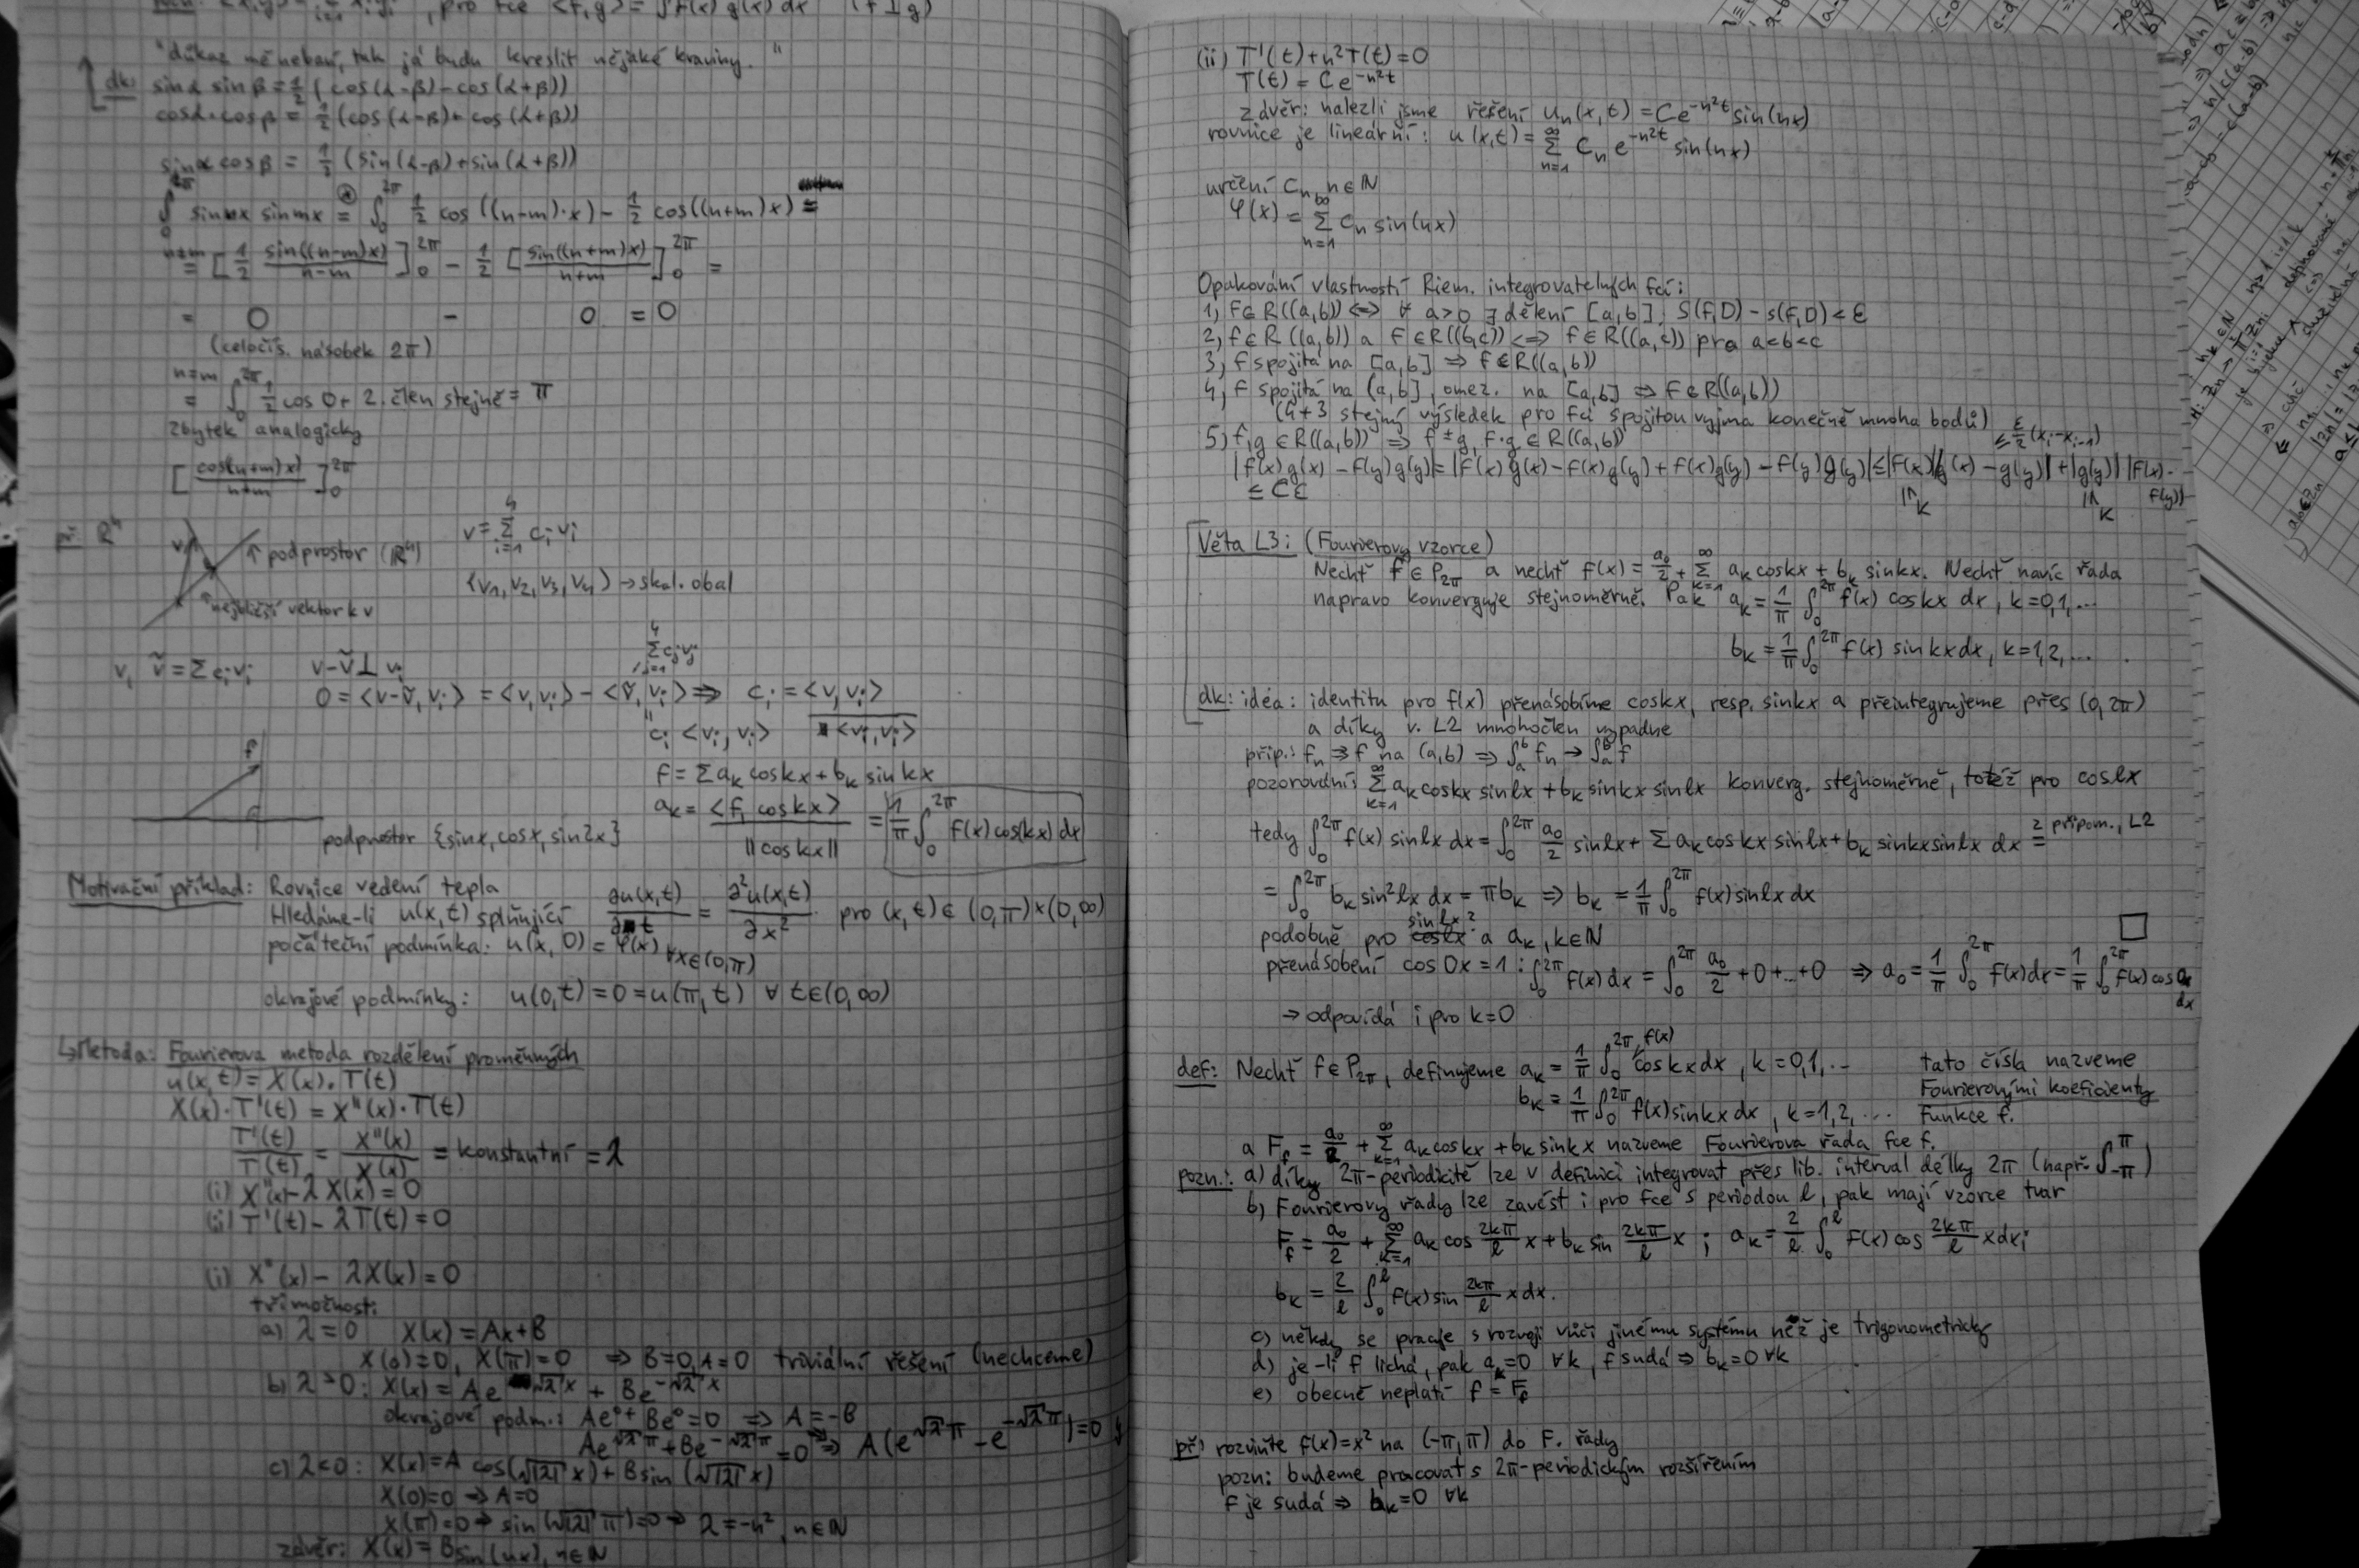 , pro fce <f,g> = ∫ f(x) g(x) dx (f⊥g)
"důkaz mě nebaví, tak já budu kreslit nějaké kraviny."
dk: sinα sinβ = 1/2 (cos(α-β) - cos(α+β))
cosα·cosβ = 1/2 (cos(α-β) + cos(α+β))
sinα cosβ = 1/2 (sin(α-β) + sin(α+β))
∫_0^{2π} sin nx sin mx = ∫_0^{2π} 1/2 cos((n-m)·x) - 1/2 cos((n+m)x) =
n≠m = [1/2 sin((n-m)x)/(n-m)]_0^{2π} - 1/2 [sin((n+m)x)/(n+m)]_0^{2π} =
= 0 - 0 = 0
(celočís. násobek 2π)
n=m = ∫_0^{2π} 1/2 cos 0 + 2. člen stejně = π
zbytek analogicky
[cos((n+m)x)/(n+m)]_0^{2π}
př: R^4
v
↑ podprostor (R^4)
nejbližší vektor k v
v = Σ_{i=1}^4 c_i v_i
(v_1, v_2, v_3, v_4) → skal. obal
v, ṽ = Σ c_i v_i v-ṽ ⊥ v_i Σ_{j=1}^4 c_j v_j
0 = <v-ṽ, v_i> = <v, v_i> - <ṽ, v_i> ⇒ c_i = <v, v_i> / <v_i, v_i>
c_i <v_i, v_i>
f
podprostor {sinx, cosx, sin2x}
f = Σ a_k coskx + b_k sin kx
a_k = <f, coskx> / ||coskx|| = 1/π ∫_0^{2π} f(x) cos(kx) dx
Motivační příklad: Rovnice vedení tepla
Hledáme-li u(x,t) splňující ∂u(x,t)/∂t = ∂²u(x,t)/∂x² pro (x,t) ∈ (0,π)×(0,∞)
počáteční podmínka: u(x,0) = φ(x) ∀x∈(0,π)
okrajové podmínky: u(0,t) = 0 = u(π,t) ∀ t∈(0,∞)
↳ Metoda: Fourierova metoda rozdělení proměnných
u(x,t) = X(x)·T(t)
X(x)·T'(t) = X''(x)·T(t)
T'(t)/T(t) = X''(x)/X(x) = konstantní = λ
(i) X''(x) - λX(x) = 0
(ii) T'(t) - λT(t) = 0
(i) X''(x) - λX(x) = 0
tři možnosti:
a) λ = 0 X(x) = Ax+B
X(0)=0, X(π)=0 ⇒ B=0, A=0 triviální řešení (nechceme)
b) λ>0: X(x) = Ae^{√λ x} + Be^{-√λ x}
okrajové podm.: Ae^0 + Be^0 = 0 ⇒ A = -B
Ae^{√λ π} + Be^{-√λ π} = 0 ⇒ A(e^{√λ π} - e^{-√λ π}) = 0
c) λ<0: X(x) = A cos(√|λ| x) + B sin(√|λ| x)
X(0)=0 ⇒ A=0
X(π)=0 ⇒ sin(√|λ| π) = 0 ⇒ λ = -n², n∈N
závěr: X(x) = B sin(nx), n∈N
(ii) T'(t) + n²T(t) = 0
T(t) = Ce^{-n²t}
závěr: nalezli jsme řešení u_n(x,t) = Ce^{-n²t} sin(nx)
rovnice je lineární: u(x,t) = Σ_{n=1}^∞ C_n e^{-n²t} sin(nx)
určení C_n, n∈N
φ(x) = Σ_{n=1}^∞ C_n sin(nx)
Opakování vlastností Riem. integrovatelných fcí:
1, f∈R((a,b)) ⟺ ∀ a>0 ∃ dělení [a,b]; S(f,D) - s(f,D) < ε
2, f∈R((a,b)) a f∈R((b,c)) ⟺ f∈R((a,c)) pro a<b<c
3, f spojitá na [a,b] ⇒ f∈R((a,b))
4, f spojitá na (a,b], omez. na [a,b] ⇒ f∈R((a,b))
(4+3 stejný výsledek pro fci spojitou vyjma konečně mnoha bodů)
5) f,g ∈R((a,b)) ⇒ f±g, f·g ∈ R((a,b)) ≤ ε/2 (x_i - x_{i-1})
|f(x)g(x) - f(y)g(y)| = |f(x)g(x) - f(x)g(y) + f(x)g(y) - f(y)g(y)| ≤ |f(x)||g(x) - g(y)| + |g(y)| |f(x) - f(y)|
≤ Cε ≤ K ≤ K
Věta L3: (Fourierovy vzorce)
Nechť f ∈ P_{2π} a nechť f(x) = a_0/2 + Σ_{k=1}^∞ a_k coskx + b_k sinkx. Nechť navíc řada
napravo konverguje stejnoměrně. Pak a_k = 1/π ∫_0^{2π} f(x) coskx dx, k=0,1,...
b_k = 1/π ∫_0^{2π} f(x) sinkx dx, k=1,2,...
dk: idea: identitu pro f(x) přenásobíme coskx, resp. sinkx a přeintegrujeme přes (0,2π)
a díky v. L2 mnohočlen vypadne
přip.: f_n ⇉ f na (a,b) ⇒ ∫_a^b f_n → ∫_a^b f
pozorování: Σ_{k=1}^∞ a_k coskx sinlx + b_k sinkx sinlx konverg. stejnoměrně, totéž pro coslx
tedy ∫_0^{2π} f(x) sinlx dx = ∫_0^{2π} a_0/2 sinlx + Σ a_k coskx sinlx + b_k sinkx sinlx dx = z připom., L2
= ∫_0^{2π} b_k sin²lx dx = πb_k ⇒ b_k = 1/π ∫_0^{2π} f(x) sinlx dx
podobně pro sinlx? a a_k, k∈N □
přenásobení cos0x = 1: ∫_0^{2π} f(x) dx = ∫_0^{2π} a_0/2 + 0 + ... + 0 ⇒ a_0 = 1/π ∫_0^{2π} f(x) dx = 1/π ∫_0^{2π} f(x) cos 0x dx
→ odpovídá i pro k=0
def: Nechť f∈P_{2π}, definujeme a_k = 1/π ∫_0^{2π} f(x) coskx dx, k=0,1,... tato čísla nazveme
b_k = 1/π ∫_0^{2π} f(x) sinkx dx, k=1,2,... Fourierovými koeficienty funkce f.
a F_f = a_0/2 + Σ_{k=1}^∞ a_k coskx + b_k sinkx nazveme Fourierova řada fce f.
pozn.: a) díky 2π-periodicitě lze v definici integrovat přes lib. interval délky 2π (např. ∫_{-π}^π)
b) Fourierovy řady lze zavést i pro fce s periodou l, pak mají vzorce tvar
F_f = a_0/2 + Σ_{k=1}^∞ a_k cos 2kπ/l x + b_k sin 2kπ/l x ; a_k = 2/l ∫_0^l f(x) cos 2kπ/l x dx;
b_k = 2/l ∫_0^l f(x) sin 2kπ/l x dx.
c) někdy se pracuje s rozvoji vůči jinému systému než je trigonometrický
d) je-li f lichá, pak a_k=0 ∀k, f sudá ⇒ b_k=0 ∀k
e) obecně neplatí f = F_f
př) rozviňte f(x)=x² na (-π,π) do F. řady
pozn: budeme pracovat s 2π-periodickým rozšířením
f je sudá ⇒ b_k=0 ∀k